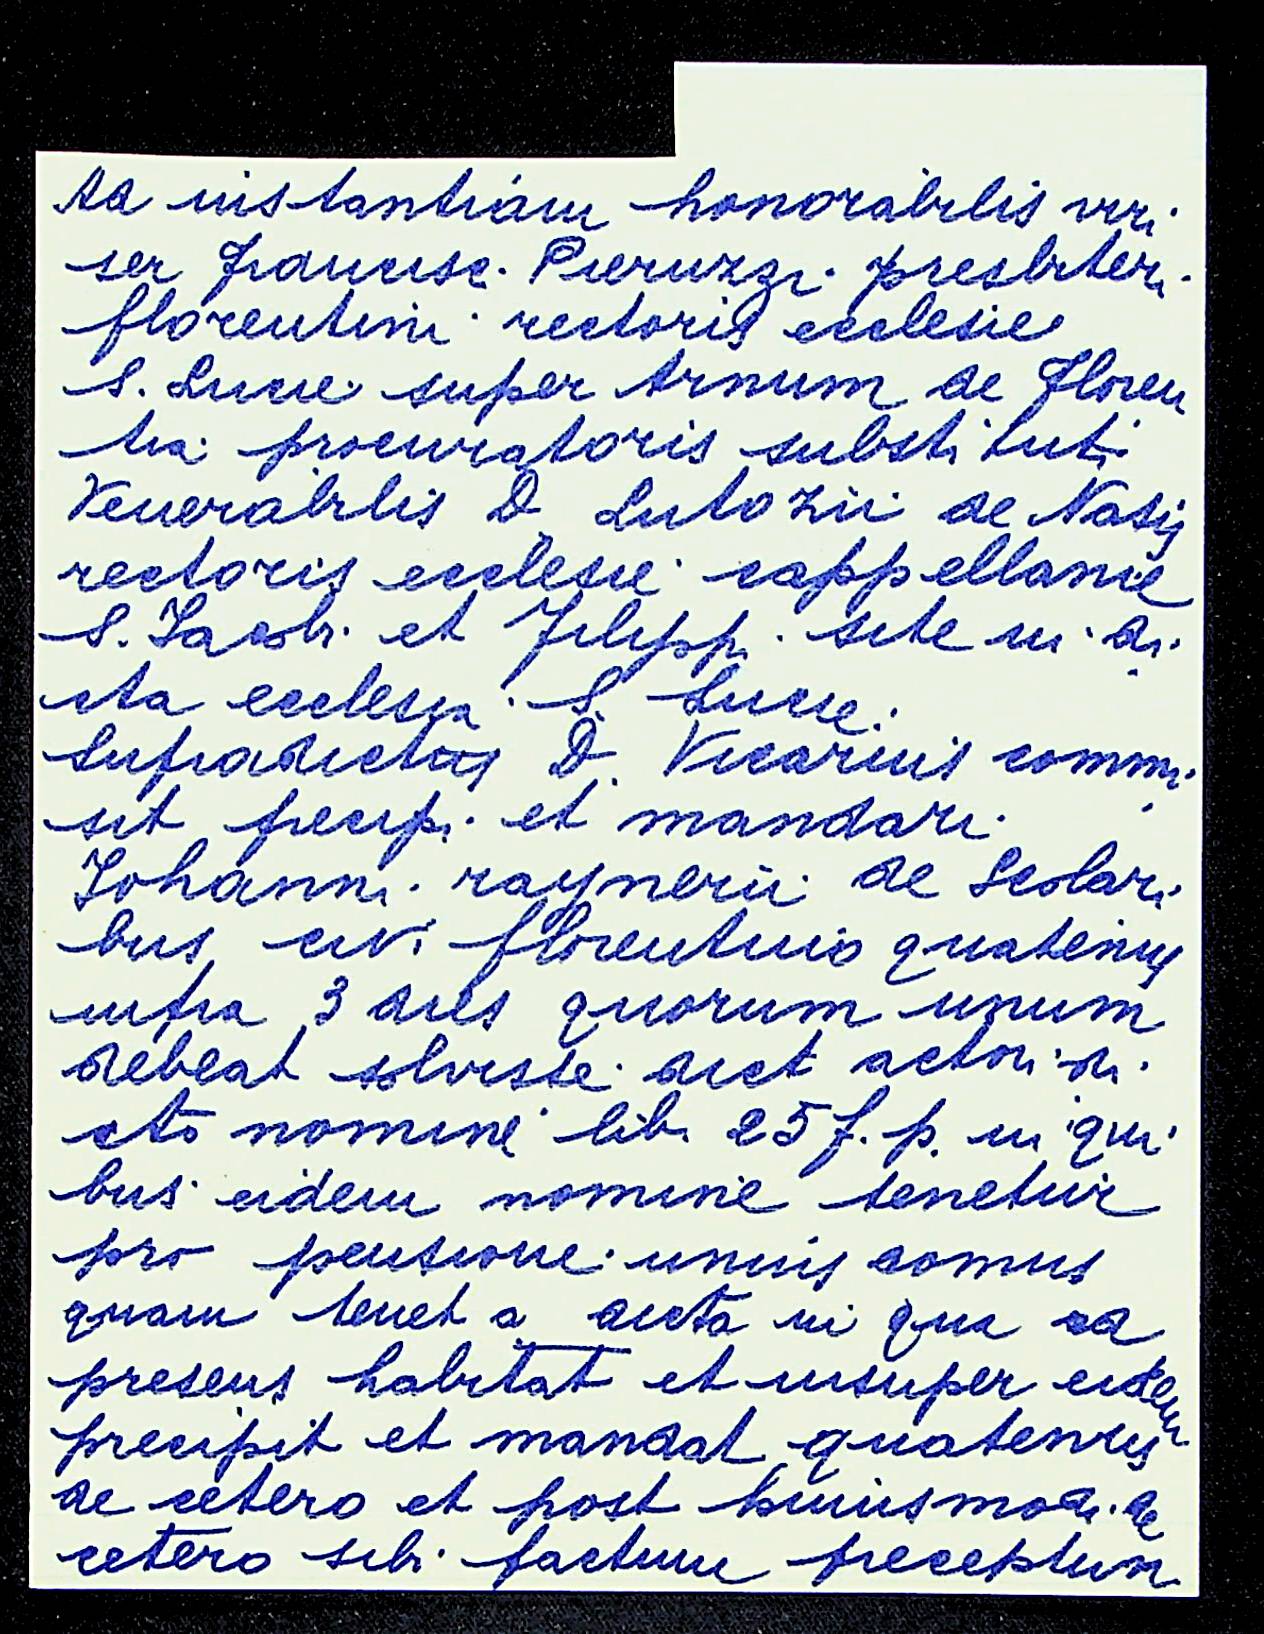 Ad instantiam honorabilis viri
ser Francisc. Pieruzzi presbiteri
florentini rectoris ecclesie
S. Lucie super Arnum de Floren
tia procuratoris substituti
Venerabilis D. Lutozii de Nasis
rectoris ecclesie cappellanie
S. Jacobi et Filippi site in di
cta ecclesia S. Lucie.
Supradictus D. Vicarius commi
sit precipi et mandari
Johanni raynerii de Scolari
bus civi florentino quatenus
infra 3 dies quorum unum
debeat solvisse dict actori di
cto nomine lib. 25 f. p. in qui
bus eidem nomine tenetur
pro pensione unius domus
quam tenet a dicta in qua ad
presens habitat et insuper eidem
precipit et mandat quatenus
de cetero et post huiusmodi de
cetero sibi factum preceptum